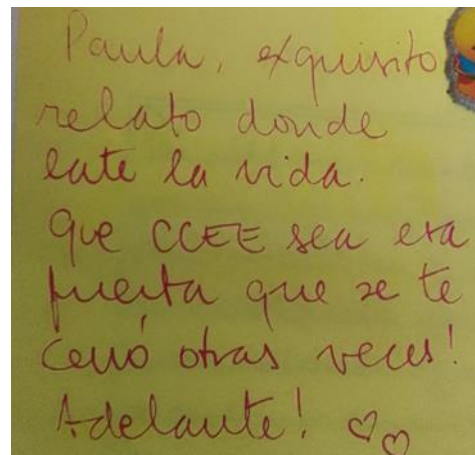 Paula, exquisito
relato donde
late la vida.
Que CCEE sea esa
puerta que se te
cerró otras veces!
Adelante! ♡♡